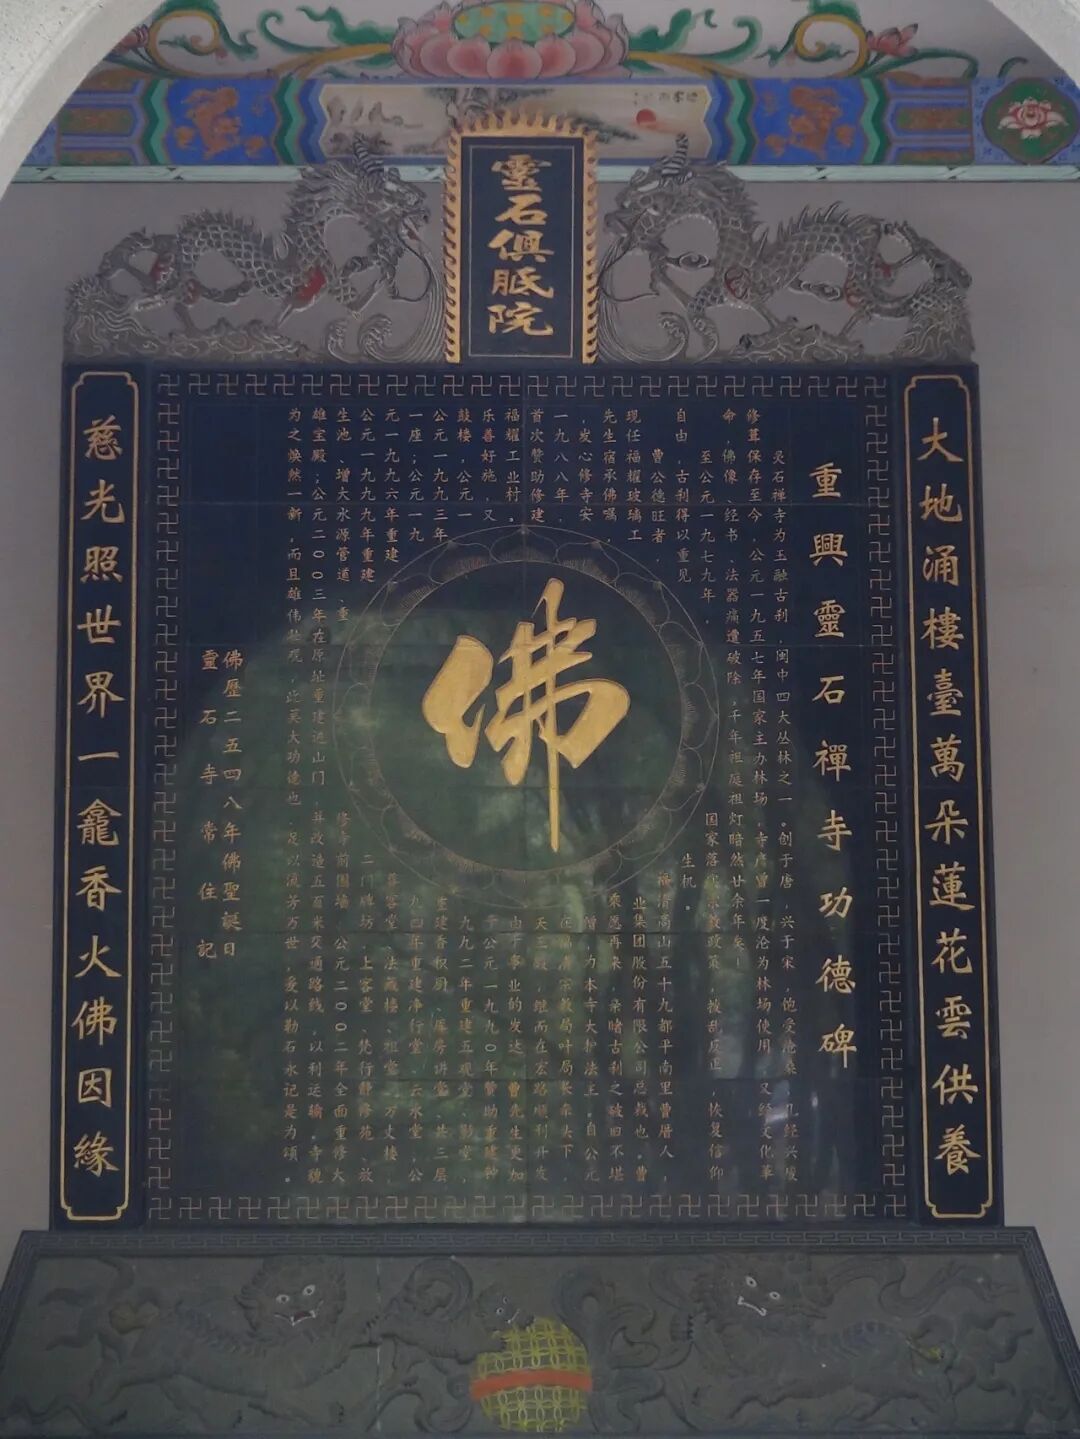 靈石俱胝院
大地涌樓臺萬朵蓮花雲供養
慈光照世界一龕香火佛因緣
重興靈石禪寺功德碑
佛
灵石禅寺为玉融古刹，闽中四大丛林之一。创于唐，兴于宋，饱受沧桑，几经兴废
修葺保存至今，公元一九五七年国家主办林场，寺产曾一度沦为林场使用，又经文化革
命，佛像、经书、法器痛遭破除，千年祖庭祖灯暗然廿余年矣！
至公元一九七九年，国家落实宗教政策，拨乱反正，恢复信仰
自由，古刹得以重见生机。
曹公德旺者，福清高山五十九都平南里曹厝人，
现任福耀玻璃工业集团股份有限公司总裁也。曹
先生宿承佛嘱，乘愿再来，亲睹古刹之破旧不堪
，发心修寺安僧，力为本寺大护法主，自公元
一九八八年，在福清宗教局叶局长牵头下，
首次赞助修建天王殿，继而在宏路顺利开发
福耀工业村。由于事业的发达，曹先生更加
乐善好施，又于公元一九九〇年赞助重建钟
鼓楼，公元一九九二年重建五观堂、影堂，
公元一九九三年重建香积厨、库房讲堂，共三层
一座；公元一九九四年重建净行堂、云水堂，公
元一九九六年重建善客堂、法藏楼、祖堂、方丈楼，
公元一九九九年重建二门牌坊、上客堂、梵行静修苑、放
生池、增大水源管道、重修寺前围墙，公元二〇〇二年全面重修大
雄宝殿；公元二〇〇三年在原址重建进山门，并改造五百米交通路线，以利运输，寺貌
为之焕然一新，而且雄伟壮观，此莫大功德也，足以流芳万世，爰以勒石永记是为颂。
佛歷二五四八年佛聖誕日
靈石寺常住記